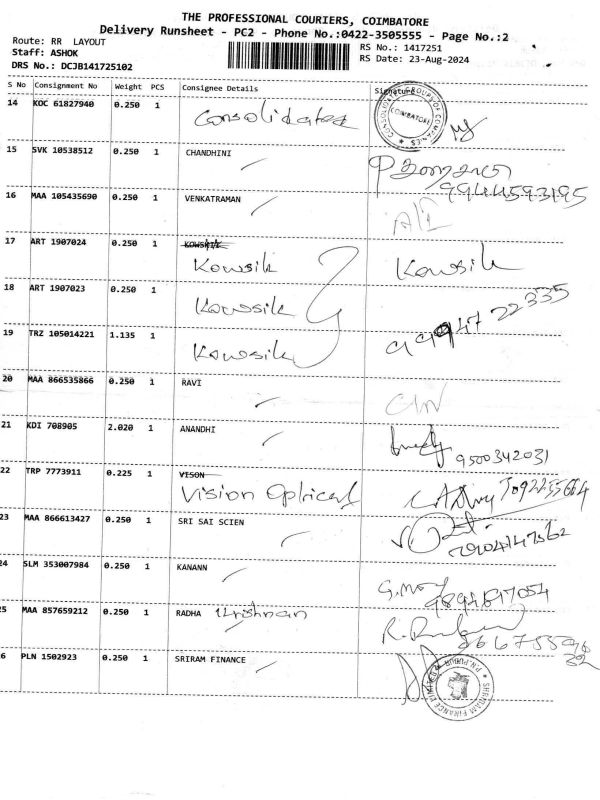 THE PROFESSIONAL COURIERS, COIMBATORE
Delivery Runsheet - PC2 - Phone No.:0422-3505555 - Page No.:2
Route: RR LAYOUT
Staff: ASHOK
DRS No.: DCJB141725102
RS No.: 1417251
RS Date: 23-Aug-2024
S No Consignment No Weight PCS Consignee Details Signature
14 KOC 61827940 0.250 1 Consolidated
COIMBATORE
15 SVK 10538512 0.250 1 CHANDHINI
9944593195
16 MAA 105435690 0.250 1 VENKATRAMAN
17 ART 1907024 0.250 1 KOWSIK
Kowsik Kowsik
18 ART 1907023 0.250 1
Kowsik
19 TRZ 105014221 1.135 1
Kowsik
20 MAA 866535866 0.250 1 RAVI
21 KDI 708905 2.020 1 ANANDHI
9500342031
22 TRP 7773911 0.225 1 VISON
Vision Optical
23 MAA 866613427 0.250 1 SRI SAI SCIEN
24 SLM 353007984 0.250 1 KANANN
25 MAA 857659212 0.250 1 RADHA Krishnan
26 PLN 1502923 0.250 1 SRIRAM FINANCE